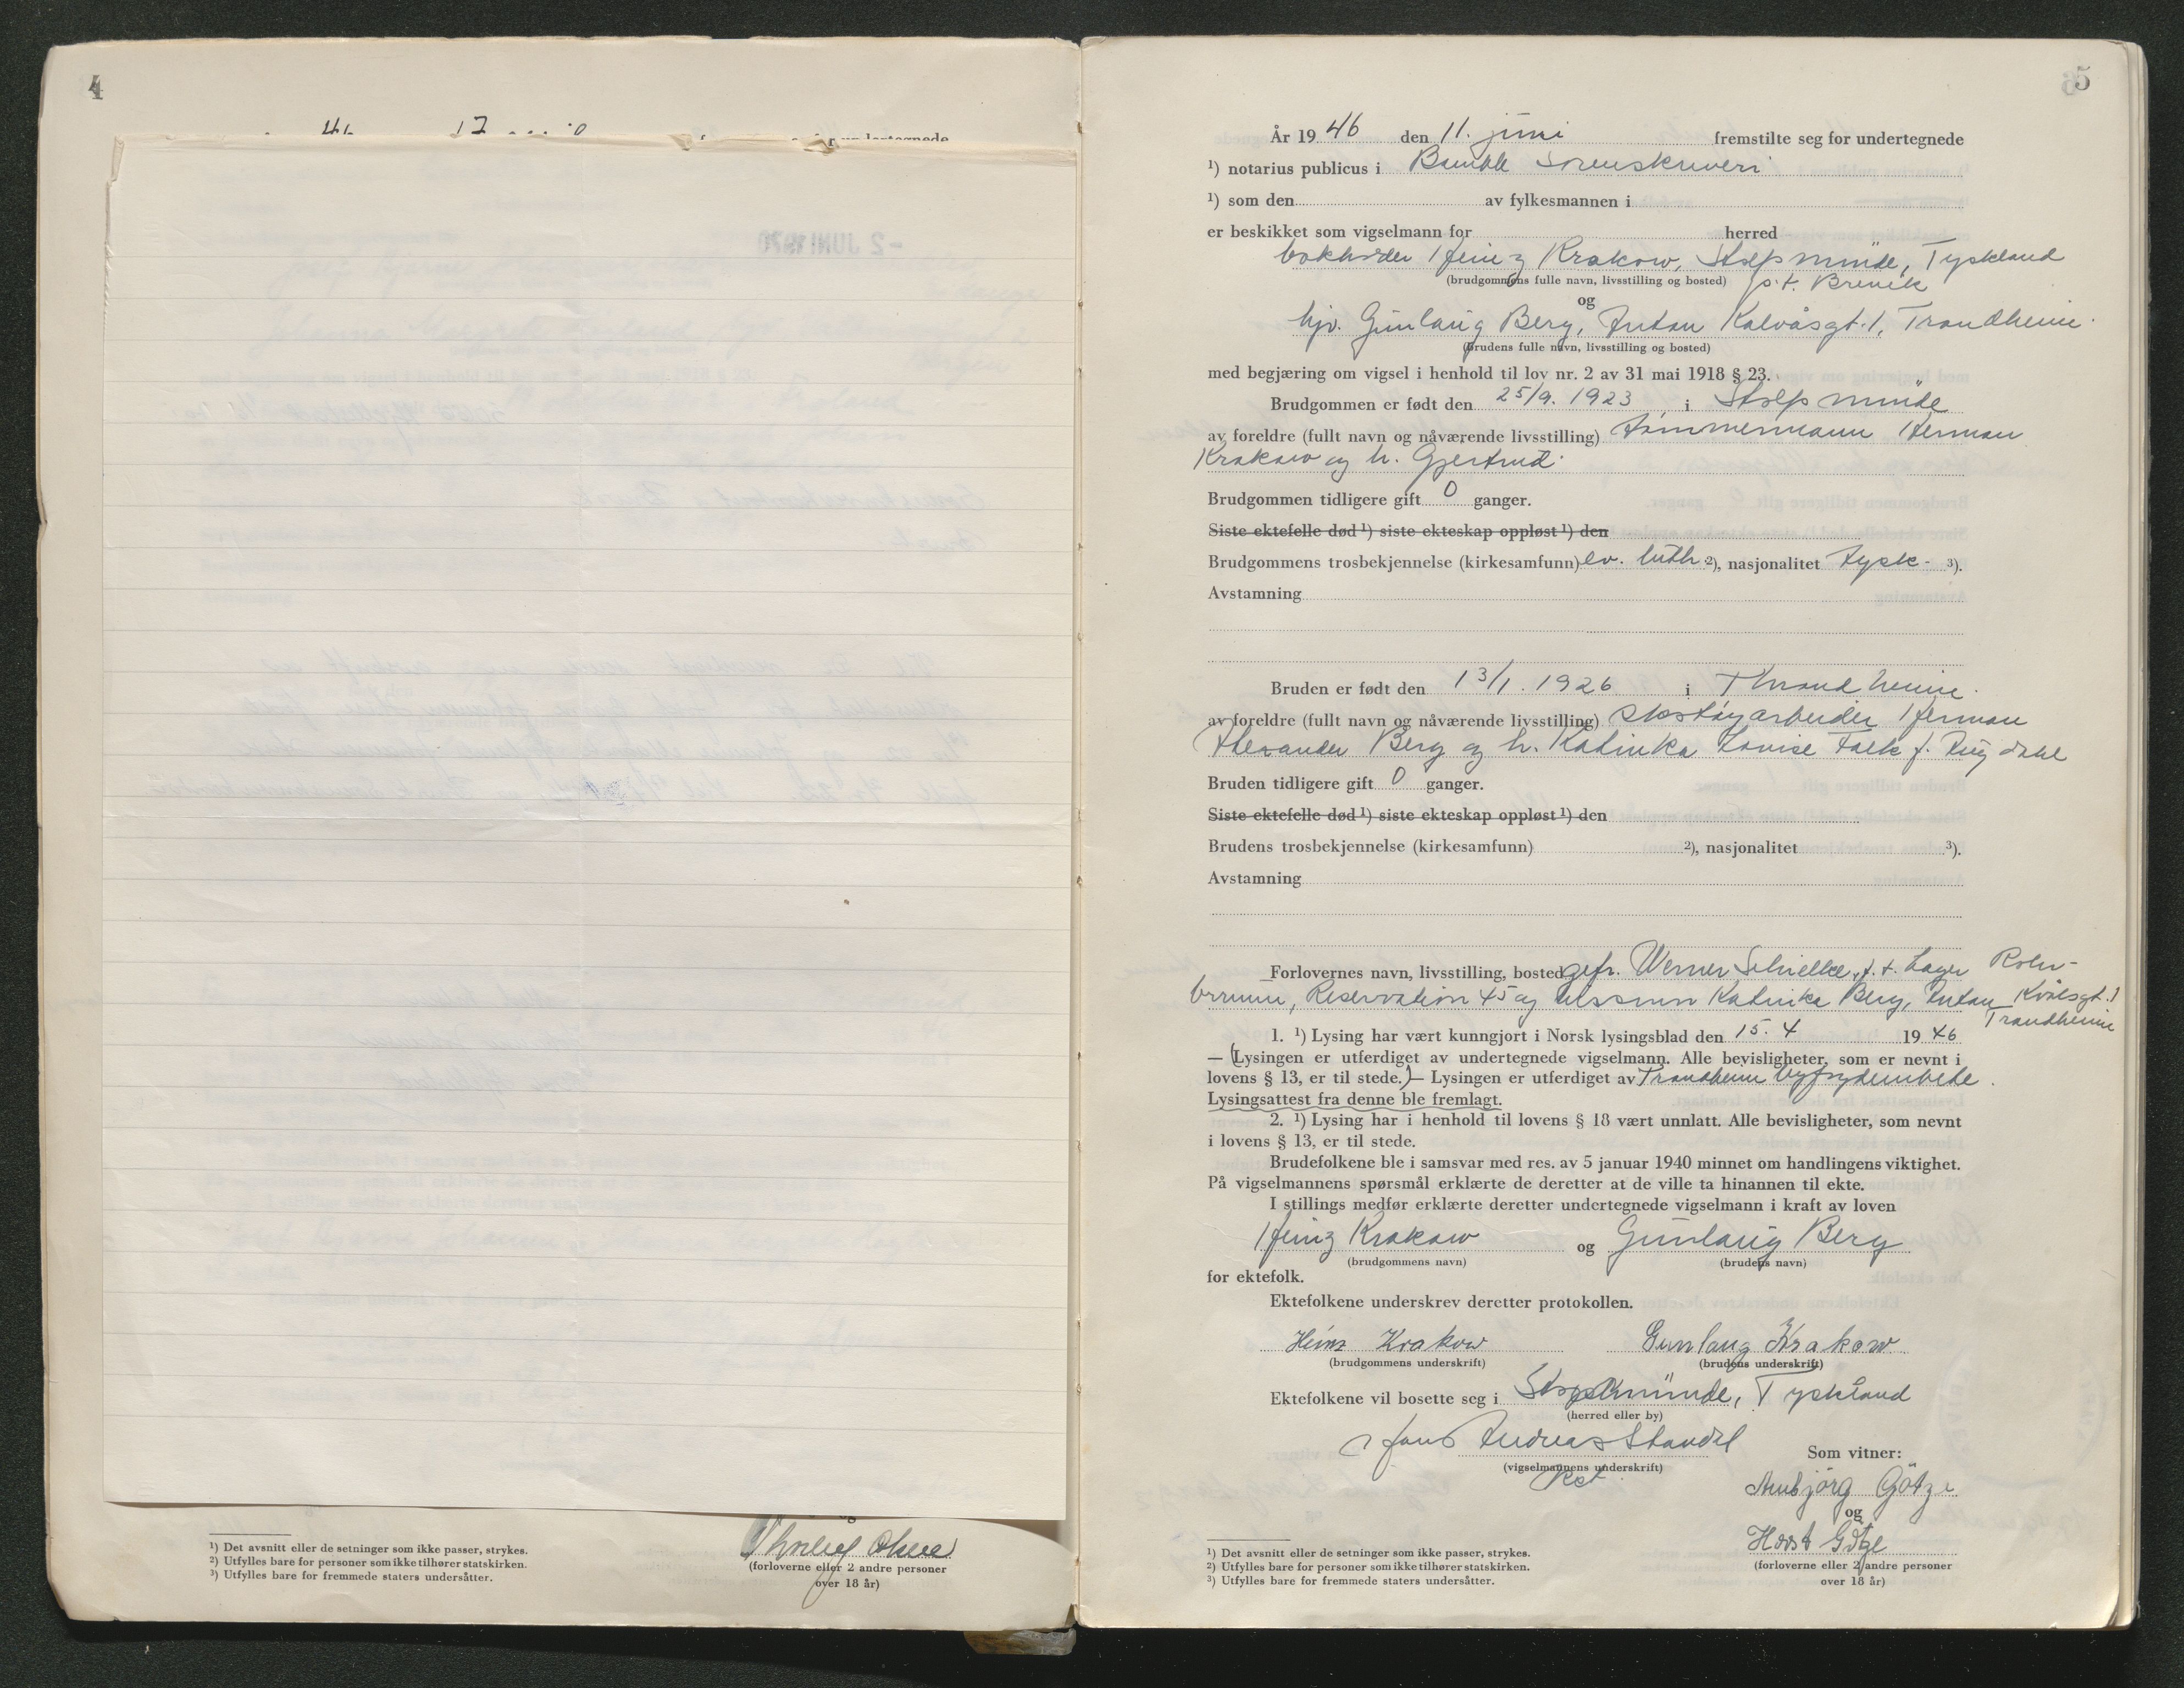 4
¹) Det avsnitt eller de setninger som ikke passer, strykes.
²) Utfylles bare for personer som ikke tilhører statskirken.
³) Utfylles bare for fremmede staters undersåtter.
(forloverne eller 2 andre personer
over 18 år)
5
År 1946 den 11. juni fremstilte seg for undertegnede
¹) notarius publicus i Bamble Sorenskriveri
¹) som den av fylkesmannen i
er beskikket som vigselmann for herred
bokholder Heinz Krakow, Stolpmünde, Tyskland
(brudgommens fulle navn, livsstilling og bosted) p.t. Brevik
og
hjv. Gunlaug Berg, Anton Kalvåsgt. 1, Trondheim.
(brudens fulle navn, livsstilling og bosted)
med begjæring om vigsel i henhold til lov nr. 2 av 31 mai 1918 § 23.
Brudgommen er født den 25/9. 1923 i Stolpmünde
av foreldre (fullt navn og nåværende livsstilling) tømmermann Herman
Krakow og h. Gjertrud.
Brudgommen tidligere gift 0 ganger.
Siste ektefelle død ¹) siste ekteskap oppløst ¹) den
Brudgommens trosbekjennelse (kirkesamfunn) ev. luth ²), nasjonalitet tysk. ³).
Avstamning
Bruden er født den 13/1. 1926 i Throndheim.
av foreldre (fullt navn og nåværende livsstilling) skotøyarbeider Herman
Alexander Berg og h. Katinka Lovise Falk f.
Bruden tidligere gift 0 ganger.
Siste ektefelle død ¹) siste ekteskap oppløst ¹) den
Brudens trosbekjennelse (kirkesamfunn) ²), nasjonalitet ³).
Avstamning
Forlovernes navn, livsstilling, bosted gefr. Werner Schielke, p.t. Lager
Reservation 45 og Katinka Berg, Anton Kvålsgt. 1
Trondheim
1. ¹) Lysing har vært kunngjort i Norsk lysingsblad den 15. 4 1946
— (Lysingen er utferdiget av undertegnede vigselmann. Alle bevisligheter, som er nevnt i
lovens § 13, er til stede.) — Lysingen er utferdiget av Trondheim byfogdembete.
Lysingsattest fra denne ble fremlagt.
2. ¹) Lysing har i henhold til lovens § 18 vært unnlatt. Alle bevisligheter, som nevnt
i lovens § 13, er til stede.
Brudefolkene ble i samsvar med res. av 5 januar 1940 minnet om handlingens viktighet.
På vigselmannens spørsmål erklærte de deretter at de ville ta hinannen til ekte.
I stillings medfør erklærte deretter undertegnede vigselmann i kraft av loven
Heinz Krakow og Gunlaug Berg
(brudgommens navn) (brudens navn)
for ektefolk.
Ektefolkene underskrev deretter protokollen.
Heinz Krakow Gunlaug Krakow
(brudgommens underskrift) (brudens underskrift)
Ektefolkene vil bosette seg i Stolpmünde, Tyskland
(herred eller by)
Hans Andreas Standal
(vigselmannens underskrift)
Som vitner:
Ansbjörg Götze
og
Horst Götze
(forloverne eller 2 andre personer
over 18 år)
¹) Det avsnitt eller de setninger som ikke passer, strykes.
²) Utfylles bare for personer som ikke tilhører statskirken.
³) Utfylles bare for fremmede staters undersåtter.